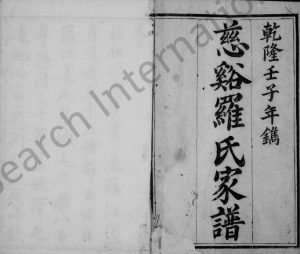 乾隆壬子年鐫
慈谿羅氏家譜
Search Internation